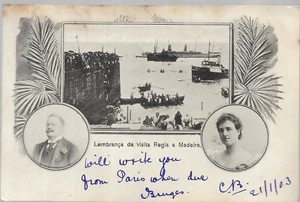 Lembrança da visita Regia a Madeira.
will write you
from Paris when due
Bruges.
CB. 21/1/03